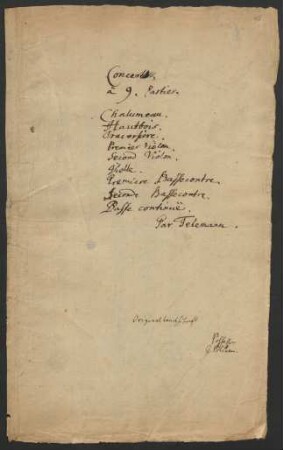 Concerto
a 9. Parties.
Chalumeau.
Hautbois.
Traversiere.
Premier Violon.
Second Violon.
Premiere Bassecontre.
Seconde Bassecontre.
Basse continuë.
Par Telemann.